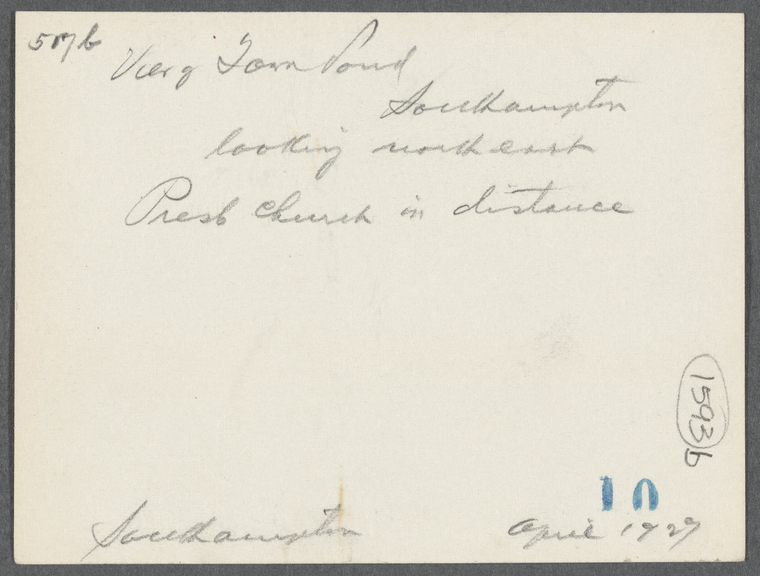 507b
View of Town Pond
Southampton
looking northeast
Presb Church in distance
1593b
10
Southampton
April 1927